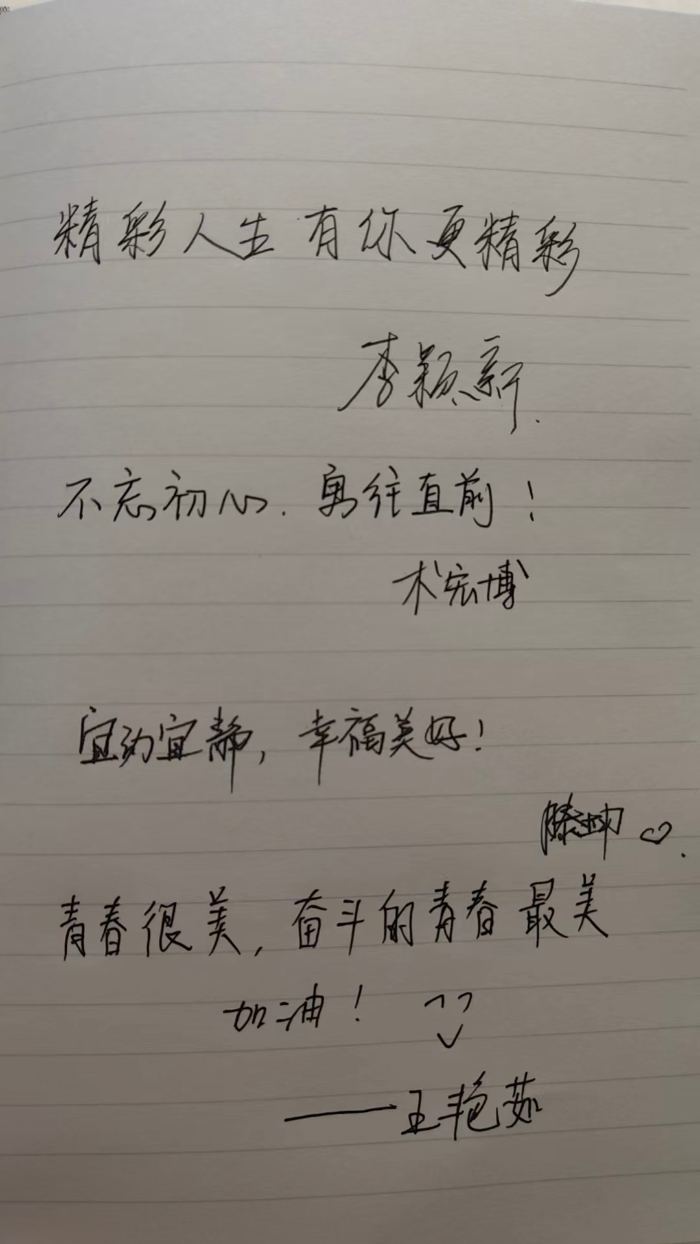 精彩人生有你更精彩
李颖新.
不忘初心.勇往直前!
术宏博
宜动宜静,幸福美好!
滕坤
青春很美,奋斗的青春最美
加油!
——王艳茹